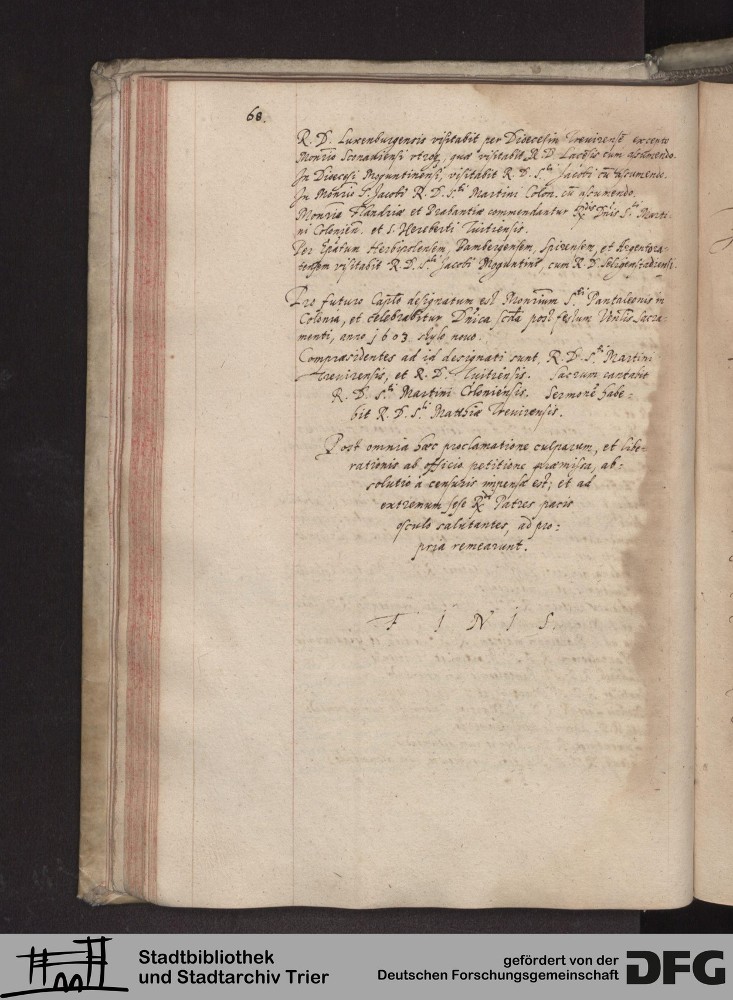 68.
R. D. Luxenburgensis visitabit per Diœcesin Trevirensē excepto
Monrio Sconaviensi utroq, quæ visitabit R. D. Lacēsis cum assumendo.
In Diœcesi Moguntinensi, visitabit R. D. S.ti Jacobi cū assumendo.
In Monrio S. Jacobi R. D. S.ti Martini Colon. cū assumendo.
Monria Flandriæ et Brabantiæ commendantur Dnis S.ti Marti-
ni Colonien. et S. Hereberti Tuitiensis.
Per Herbipolensem, Bambergensem, Spirensem, et Argentora-
tensem visitabit R. D. S.ti Jacobi Moguntinē, cum R. D. Seligenstadiensi.
Pro futuro Caplo designatum est Monrium S.ti Pantaleonis in
Colonia, et celebrabitur Dnica scda post festum Venlis Sacra-
menti, anno 1603 stylo novo.
Compræsidentes ad id designati sunt R. D. S.ti Martini
Trevirensis, et R. D. Tuitiensis. Sacrum cantabit
R. D. S.ti Martini Coloniensis. Sermonē habe=
bit R. D. S.ti Matthiæ Trevirensis.
Post omnia hæc proclamatione culparum, et libe-
rationis ab officio petitione præmissa, ab=
solutio à censuris impensa est; et ad
extremum sese Rdi Patres pacis
osculo salutantes, ad pro=
pria remearunt.
F I N I S
Stadtbibliothek
und Stadtarchiv Trier
gefördert von der
Deutschen Forschungsgemeinschaft
DFG